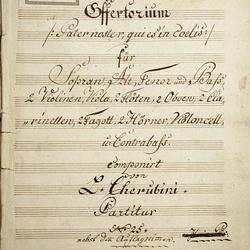 Offertorium
/: Pater noster, qui es in Coelis :/
für
Sopran, Alt, Tenor und Bass,
2 Violinen, Viola, 2 Flöten, 2 Oboen, 2 Cla-
rinetten, 2 Fagott, 2 Hörner, Violoncell,
u. Contrabass.
Componirt
von
L. Cherubini.
Partitur
No 25.
nebst den Auflagstimen.